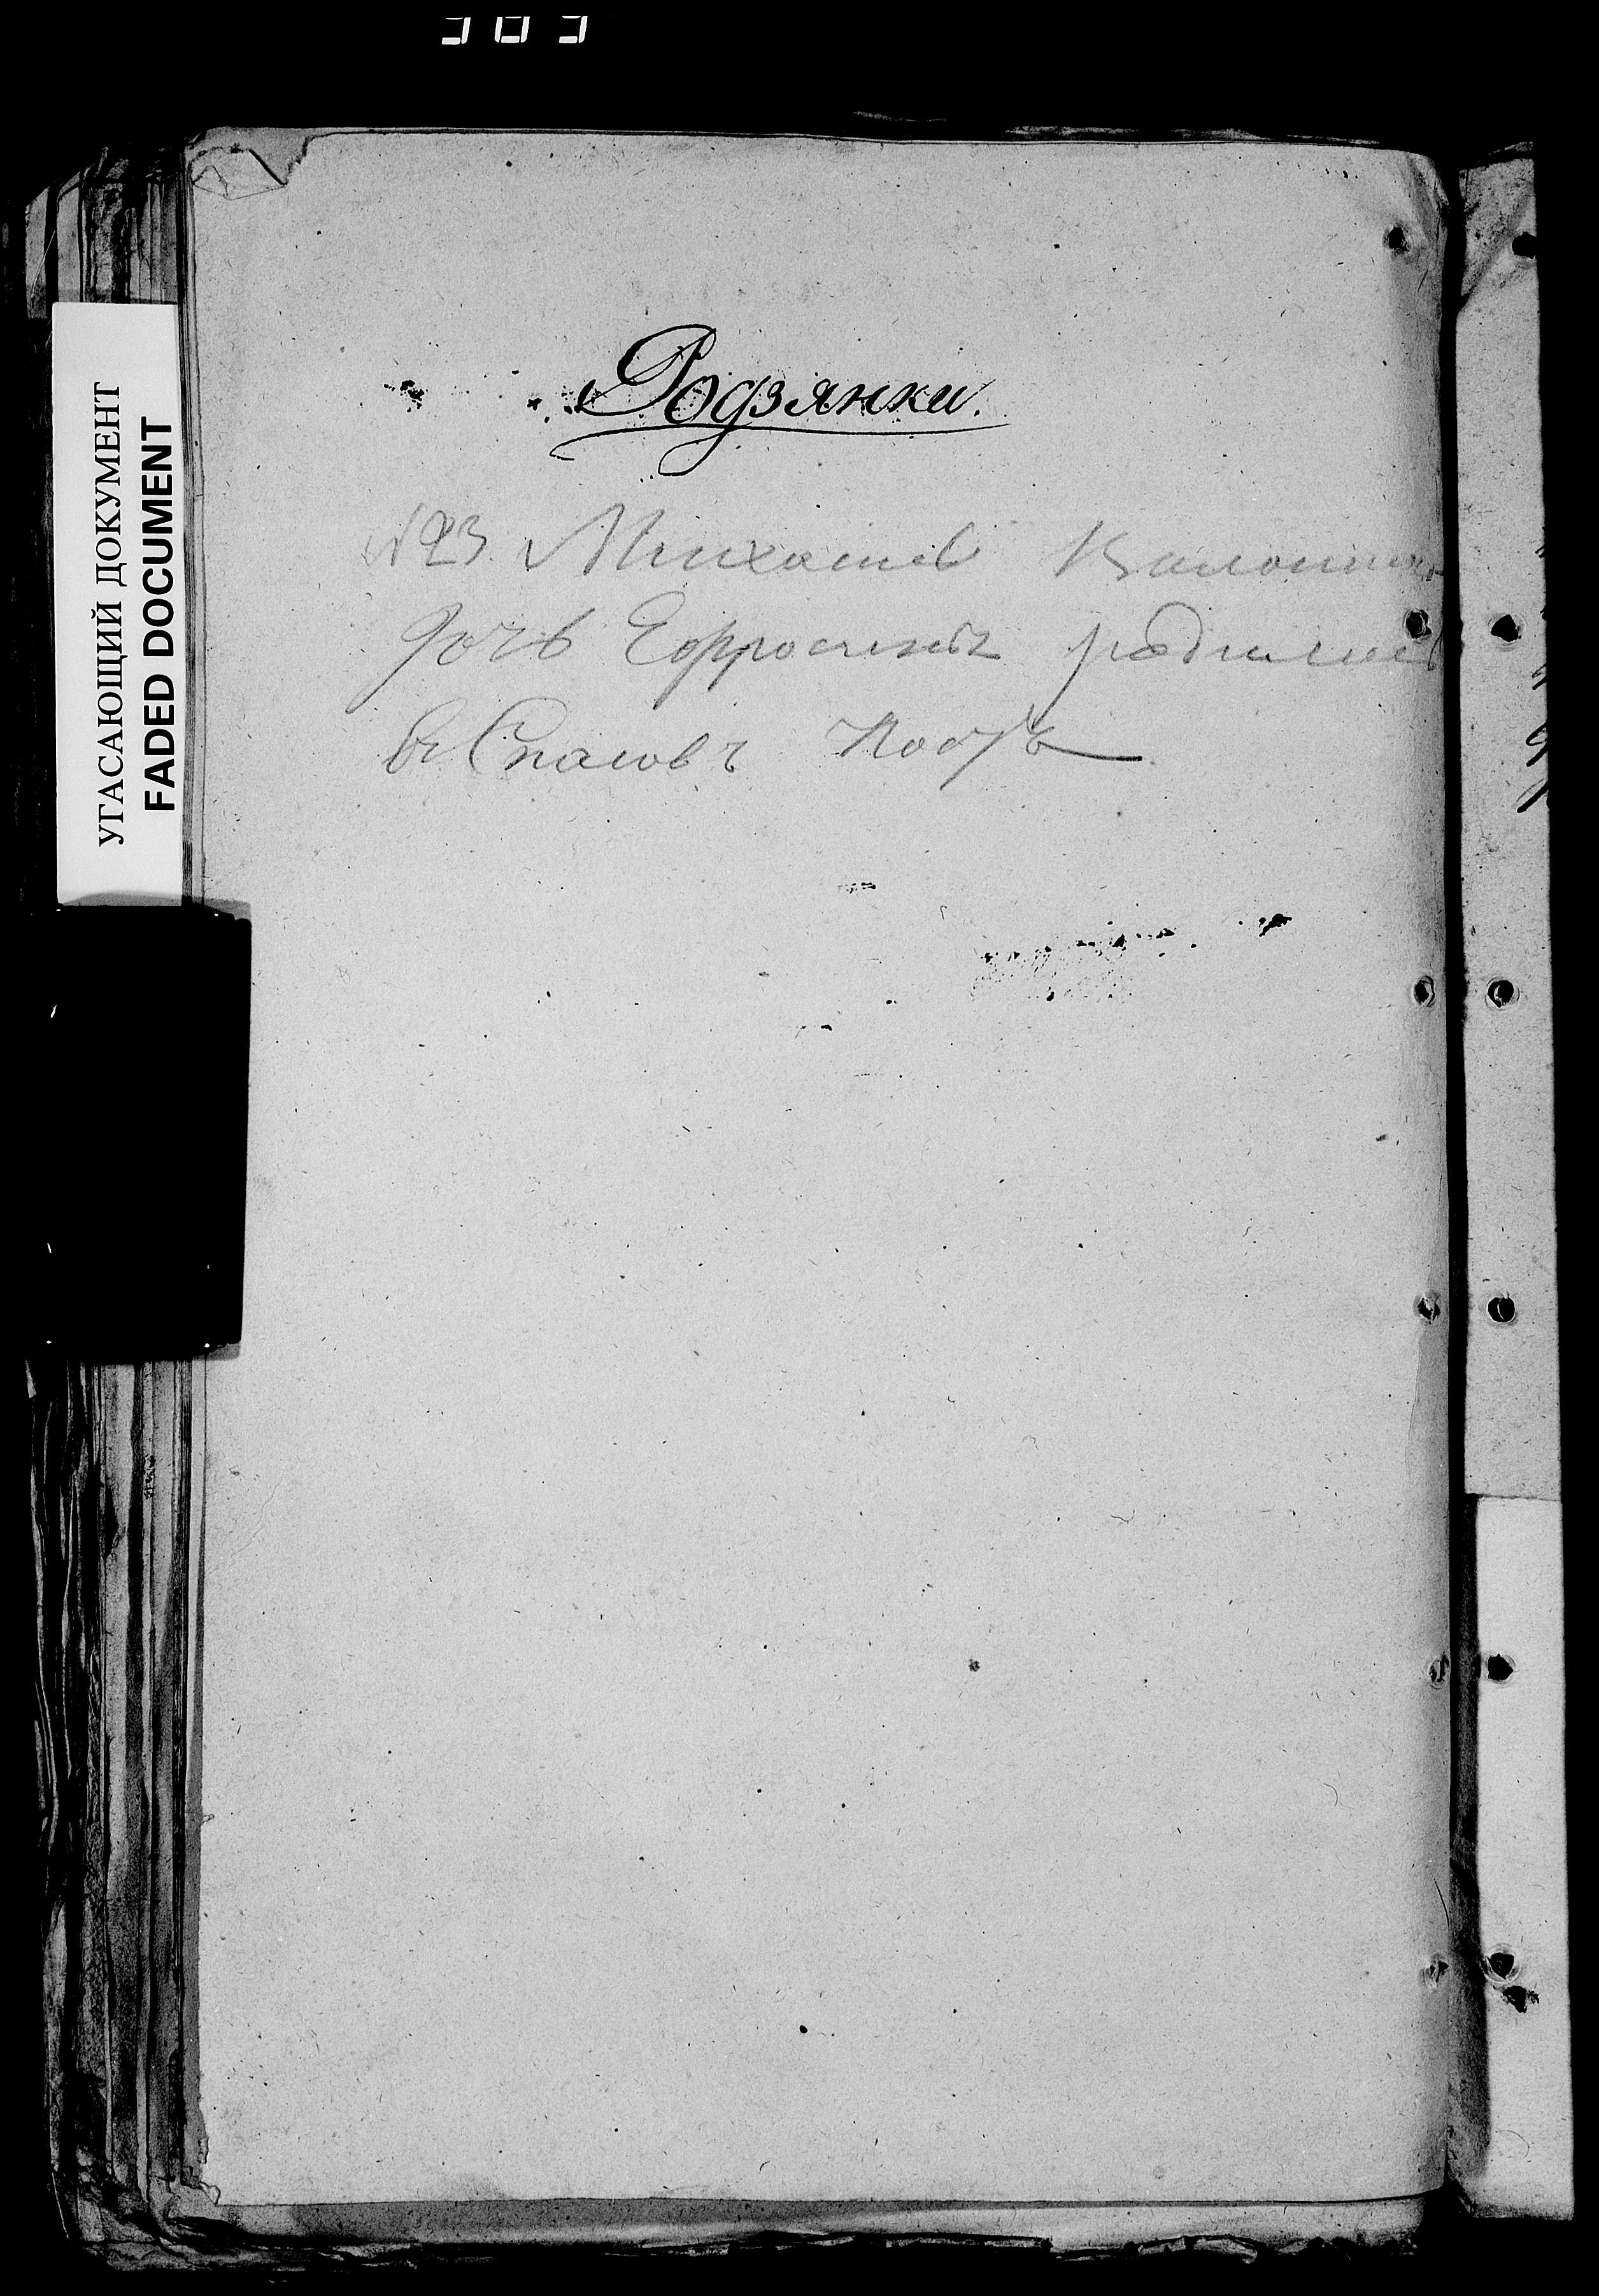 УГАСАЮЩИЙ ДОКУМЕНТ
FADED DOCUMENT
Родзянки.
№23. Михаилъ
дочь Ефросинья родилась
въ Спасовъ Постъ